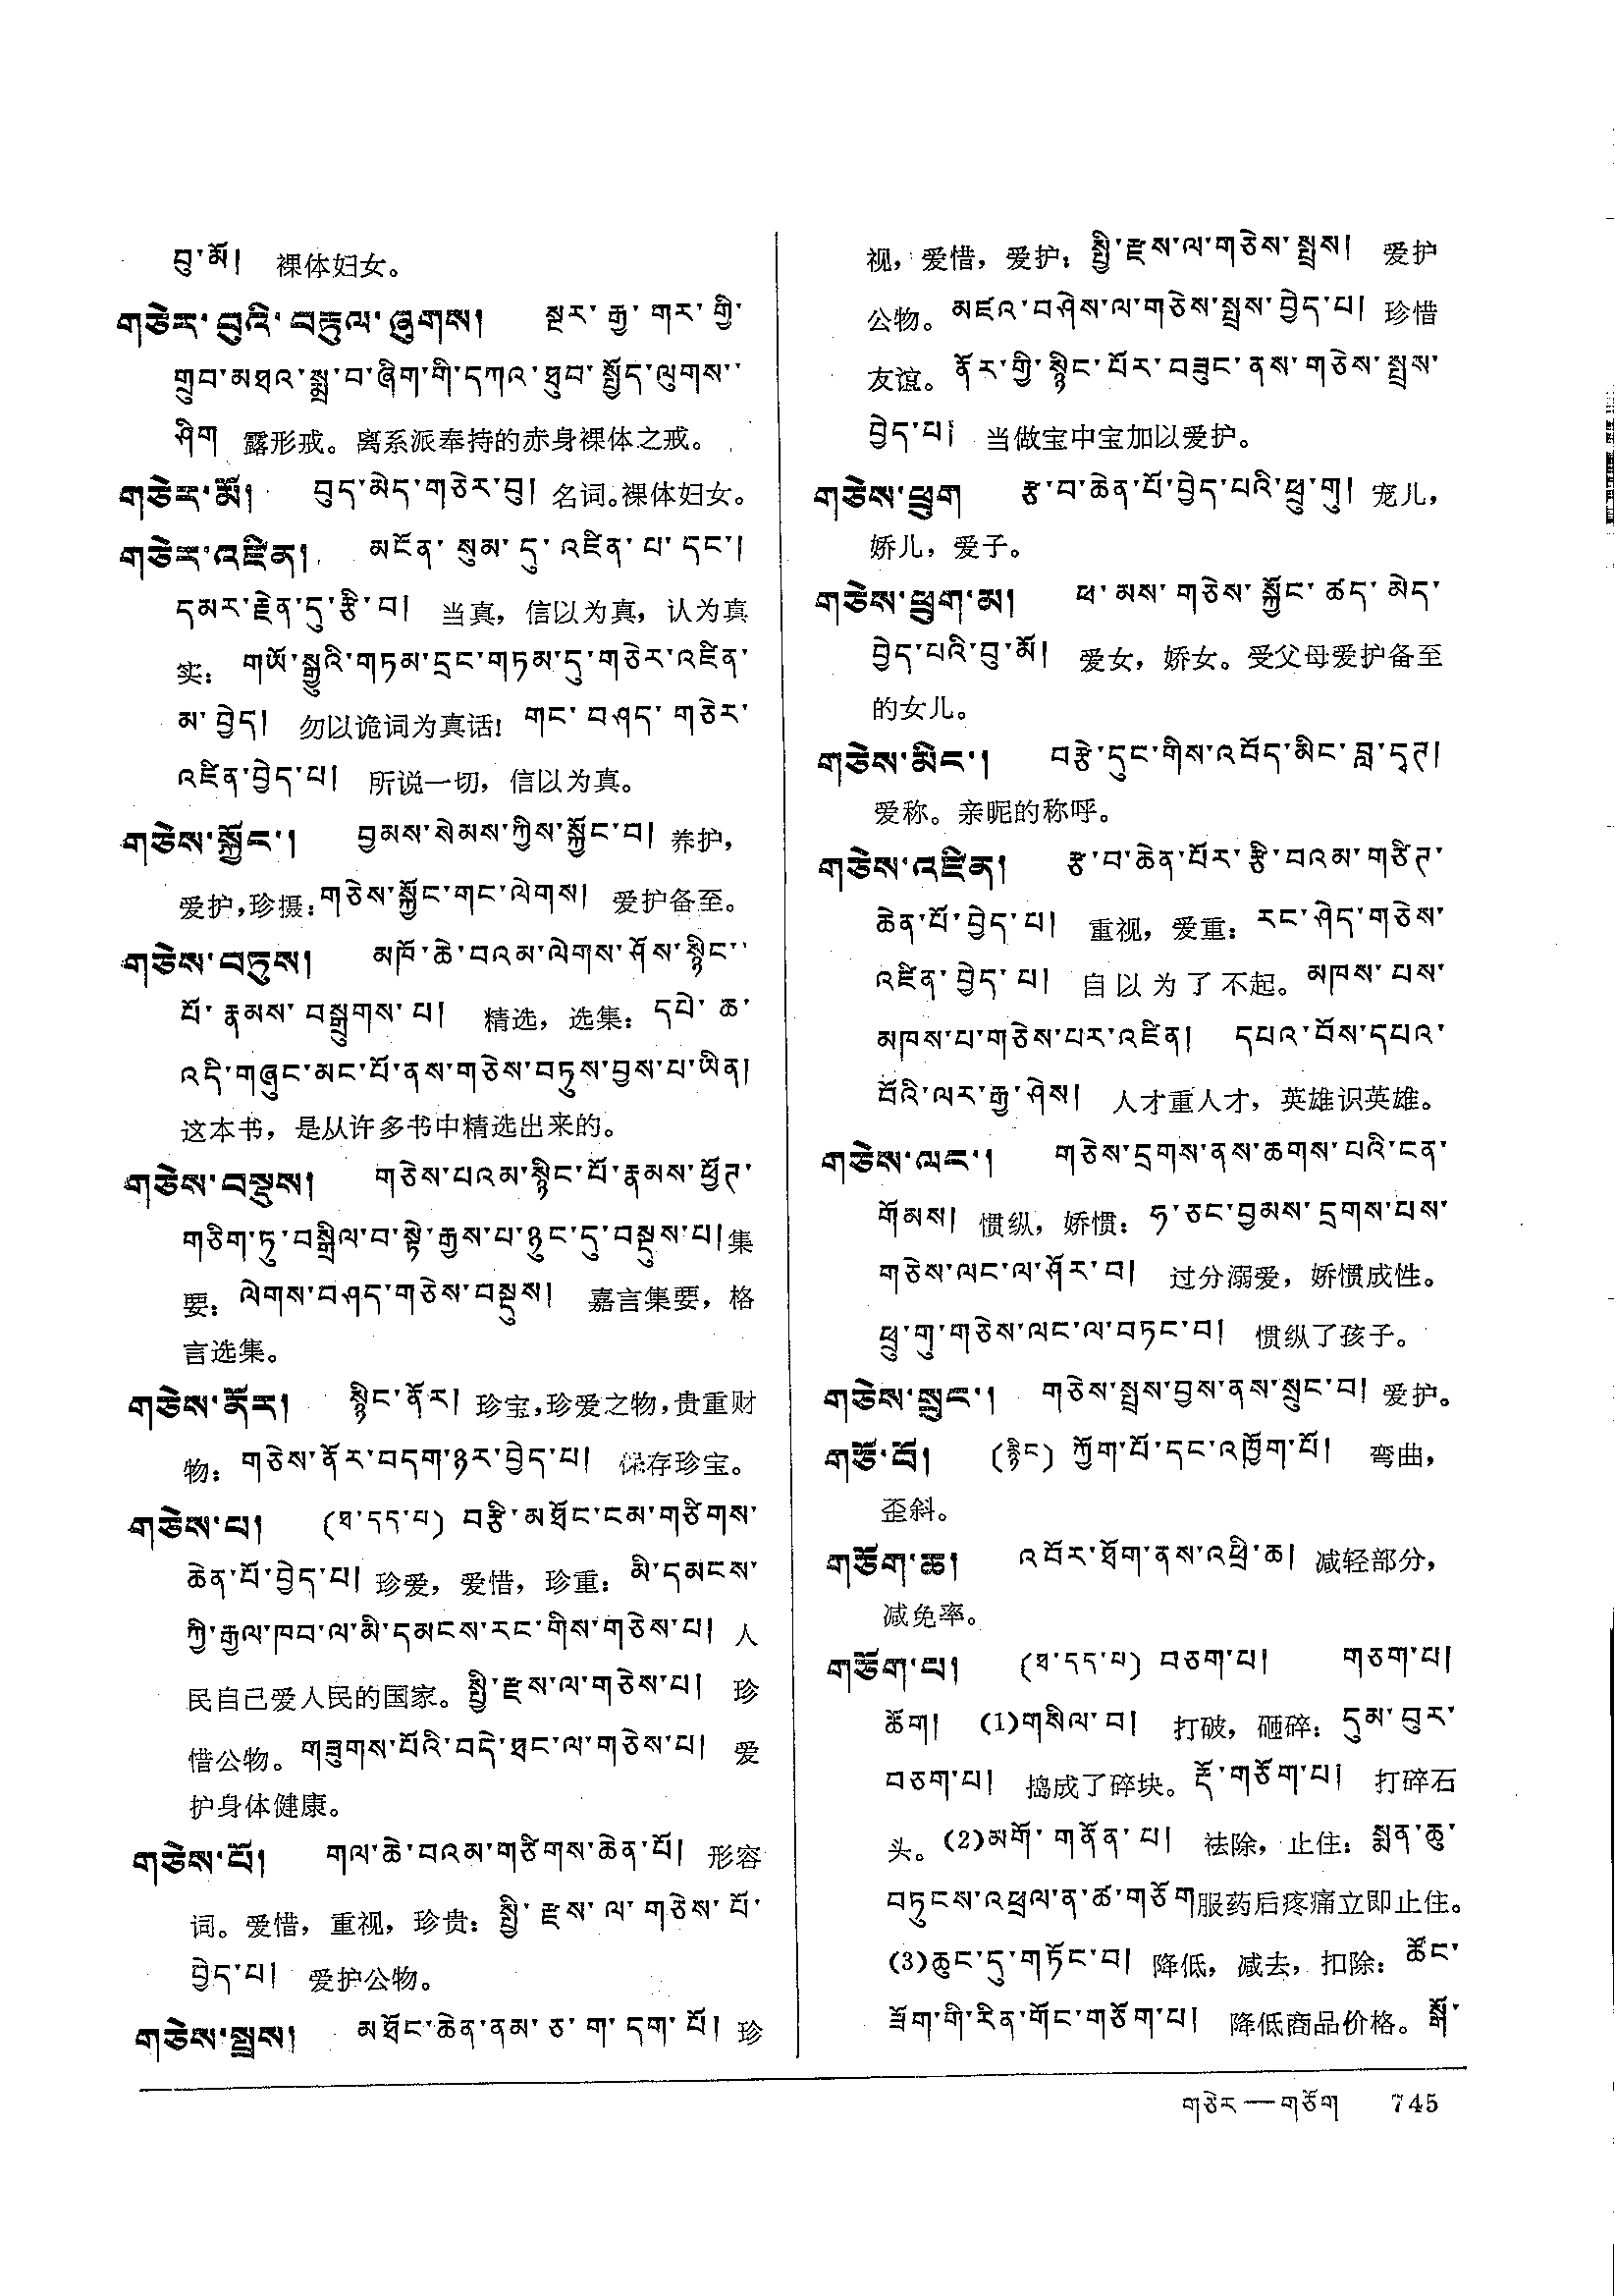 བུ་མོ། 裸体妇女。
གཅེར་བུའི་བརྟུལ་ཞུགས། སྔར་རྒྱ་གར་གྱི་
གྲུབ་མཐའ་སྨྲ་བ་ཞིག་གི་དཀའ་ཐུབ་སྤྱོད་ལུགས་
ཤིག 露形戒。离系派奉持的赤身裸体之戒。
གཅེར་མོ། བུད་མེད་གཅེར་བུ། 名词。裸体妇女。
གཅེར་འཛིན། མངོན་སུམ་དུ་འཛིན་པ་དང་།
དམར་རྗེན་དུ་རྩི་བ། 当真，信以为真，认为真
实： གཡོ་སྒྱུའི་གཏམ་དྲང་གཏམ་དུ་གཅེར་འཛིན་
མ་བྱེད། 勿以诡词为真话！ གང་བཤད་གཅེར་
འཛིན་བྱེད་པ། 所说一切，信以为真。
གཅེས་སྐྱོང་། བྱམས་སེམས་ཀྱིས་སྐྱོང་བ། 养护，
爱护，珍摄：གཅེས་སྐྱོང་གང་ལེགས། 爱护备至。
གཅེས་བཏུས། མཁོ་ཆེ་བའམ་ལེགས་ཤོས་སྙིང་
པོ་རྣམས་བསྒྲུགས་པ། 精选，选集： དཔེ་ཆ་
འདི་གཞུང་མང་པོ་ནས་གཅེས་བཏུས་བྱས་པ་ཡིན།
这本书，是从许多书中精选出来的。
གཅེས་བསྡུས། གཅེས་པའམ་སྙིང་པོ་རྣམས་ཕྱོཊ་
གཅིག་ཏུ་བསྒྲིལ་བ་སྟེ་རྒྱས་པ་ཉུང་དུ་བསྡུས་པ།集
要： ལེགས་བཤད་གཅེས་བསྡུས། 嘉言集要，格
言选集。
གཅེས་ནོར། སྙིང་ནོར། 珍宝，珍爱之物，贵重财
物： གཅེས་ནོར་བདག་ཉར་བྱེད་པ། 保存珍宝。
གཅེས་པ། (ཐ་དད་པ) བརྩི་མཐོང་ངམ་གཙིགས་
ཆེན་པོ་བྱེད་པ། 珍爱，爱惜，珍重： མི་དམངས་
ཀྱི་རྒྱལ་ཁབ་ལ་མི་དམངས་རང་གིས་གཅེས་པ། 人
民自己爱人民的国家。སྤྱི་རྫས་ལ་གཅེས་པ། 珍
惜公物。གཟུགས་པོའི་བདེ་ཐང་ལ་གཅེས་པ། 爱
护身体健康。
གཅེས་པོ། གལ་ཆེ་བའམ་གཙིགས་ཆེན་པོ། 形容
词。爱惜，重视，珍贵： སྤྱི་རྫས་ལ་གཅེས་པོ་
བྱེད་པ། 爱护公物。
གཅེས་སྤྲས། མཐོང་ཆེན་ནམ་ཅ་ག་དག་པོ། 珍
视，爱惜，爱护： སྤྱི་རྫས་ལ་གཅེས་སྤྲས། 爱护
公物。 མཛའ་བཤེས་ལ་གཅེས་སྤྲས་བྱེད་པ། 珍惜
友谊。 ནོར་གྱི་སྙིང་པོར་བཟུང་ནས་གཅེས་སྤྲས་
བྱེད་པ། 当做宝中宝加以爱护。
གཅེས་ཕྲུག རྩ་བ་ཆེན་པོ་བྱེད་པའི་ཕྲུ་གུ། 宠儿，
娇儿，爱子。
གཅེས་ཕྲུག་མ། ཕ་མས་གཅེས་སྐྱོང་ཚད་མེད་
བྱེད་པའི་བུ་མོ། 爱女，娇女。受父母爱护备至
的女儿。
གཅེས་མིང་། བརྩེ་དུང་གིས་འབོད་མིང་བླ་དྭཊ།
爱称。亲昵的称呼。
གཅེས་འཛིན། རྩ་བ་ཆེན་པོར་རྩི་བའམ་གཙིཊ་
ཆེན་པོ་བྱེད་པ། 重视，爱重： རང་ཤེད་གཅེས་
འཛིན་བྱེད་པ། 自以为了不起。 མཁས་པས་
མཁས་པ་གཅེས་པར་འཛིན། དཔའ་བོས་དཔའ་
བོའི་ལར་རྒྱ་ཤེས། 人才重人才，英雄识英雄。
གཅེས་ལང་། གཅེས་དྲགས་ནས་ཆགས་པའི་ངན་
གོམས། 惯纵，娇惯： ཧ་ཅང་བྱམས་དྲགས་པས་
གཅེས་ལང་ལ་ཤོར་བ། 过分溺爱，娇惯成性。
ཕྲུ་གུ་གཅེས་ལང་ལ་བཏང་བ། 惯纵了孩子。
གཅེས་སྲུང་། གཅེས་སྤྲས་བྱས་ནས་སྲུང་བ། 爱护。
གཅོ་བོ། (རྙིང) ཀྱོག་པོ་དང་འཁྱོག་པོ། 弯曲，
歪斜。
གཅོག་ཆ། འབོར་ཐོག་ནས་འཕྲི་ཆ། 减轻部分，
减免率。
གཅོག་པ། (ཐ་དད་པ) བཅག་པ། གཅག་པ།
ཆོག། (1)གསིལ་བ། 打破，砸碎： དུམ་བུར་
བཅག་པ། 捣成了碎块。 རྡོ་གཅོག་པ། 打碎石
头。(2)མགོ་གནོན་པ། 祛除，止住： སྨན་ཆུ་
བཏུངས་འཕྲལ་ན་ཚ་གཅོག服药后疼痛立即止住。
(3)ཆུང་དུ་གཏོང་བ། 降低，减去，扣除： ཚོང་
ཟོག་གི་རིན་གོང་གཅོག་པ། 降低商品价格。 སྒོ་
གཅེར—གཅོག 745